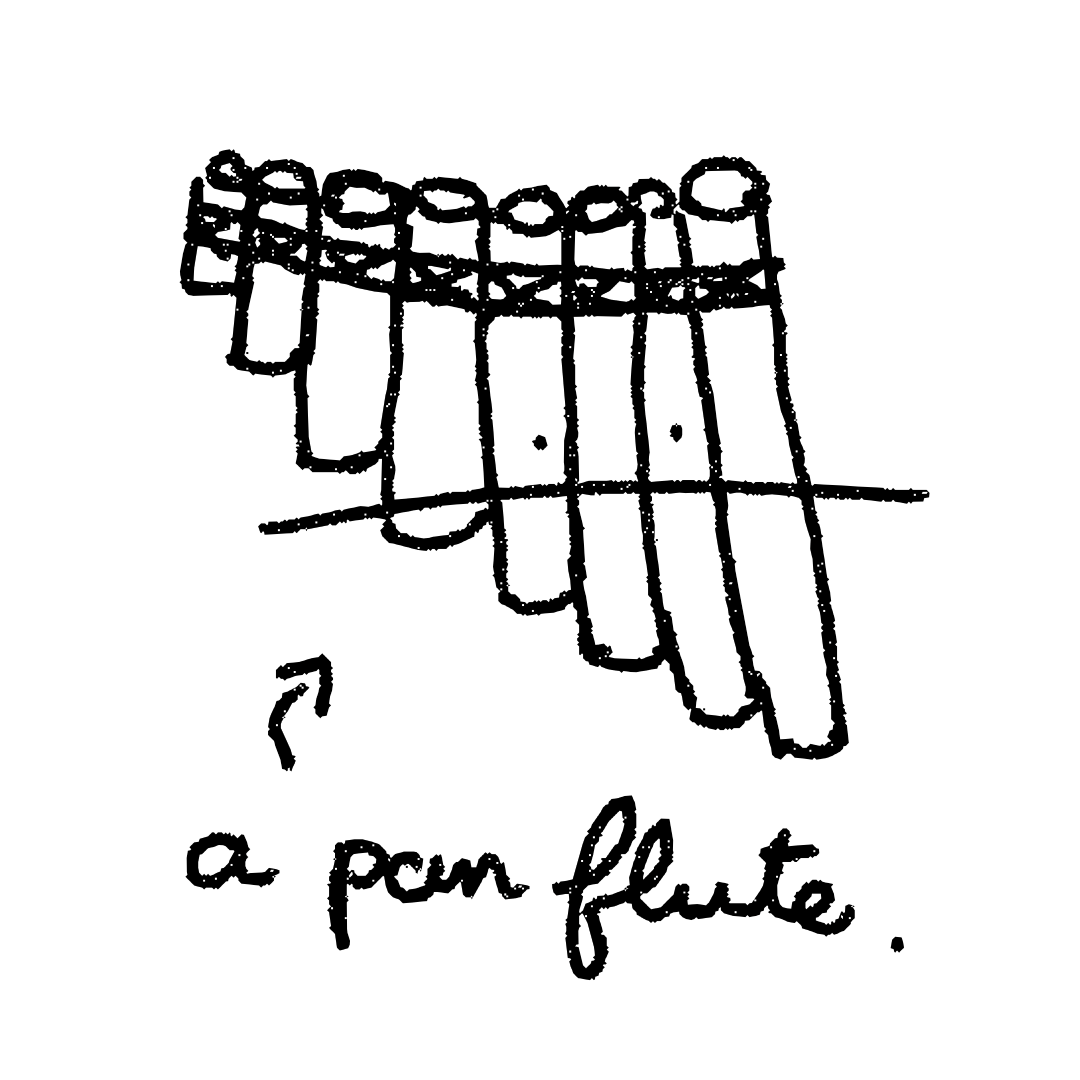 a pan flute.